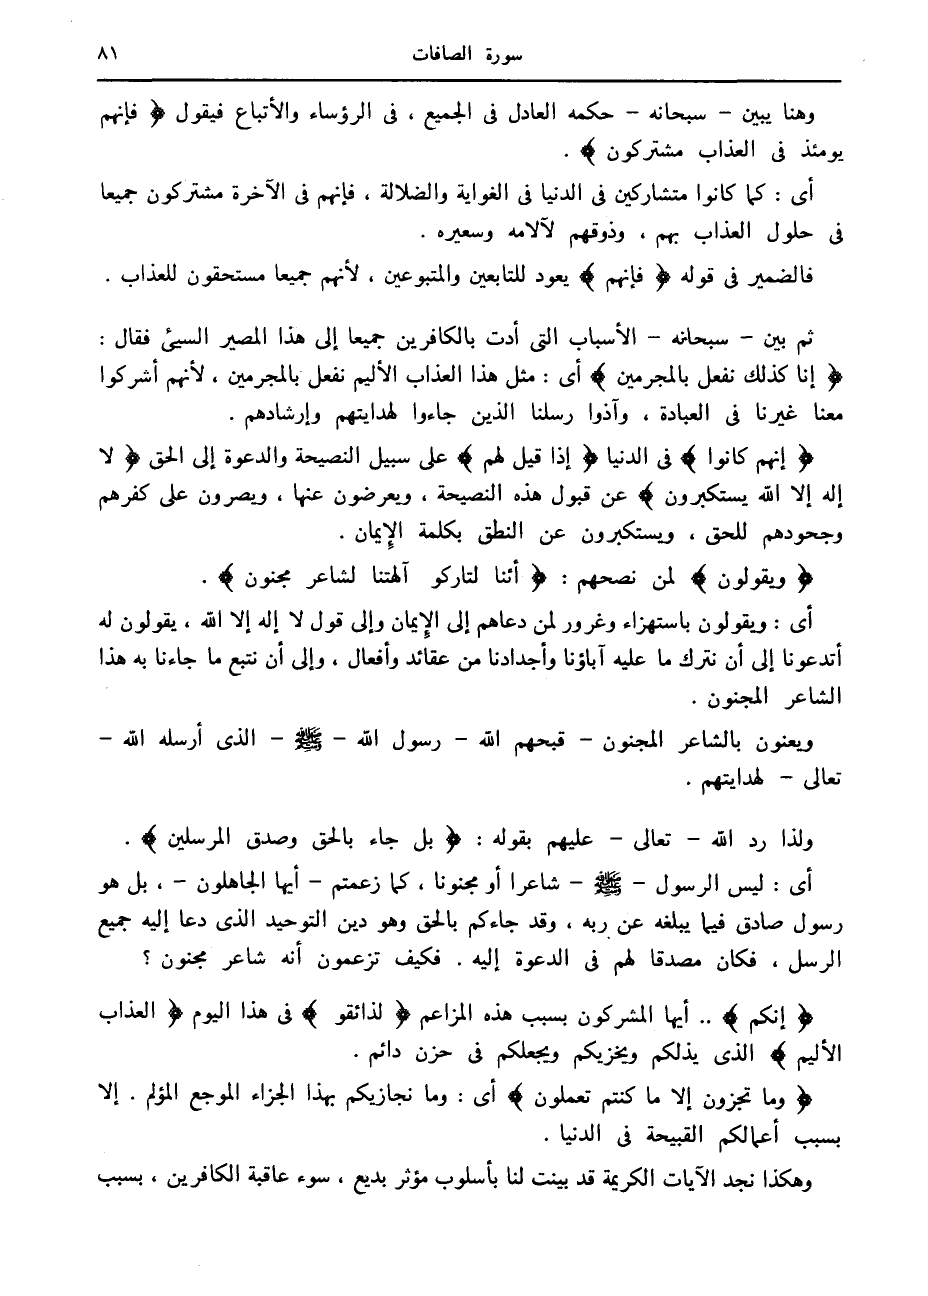 سورة الصافات ٨١
وهنا يبين – سبحانه – حكمه العادل فى الجميع ، فى الرؤساء والأتباع فيقول ﴿ فإنهم
يومئذ فى العذاب مشتركون ﴾ .
أى : كما كانوا متشاركين فى الدنيا فى الغواية والضلالة ، فإنهم فى الآخرة مشتركون جميعا
فى حلول العذاب بهم ، وذوقهم لآلامه وسعيره .
فالضمير فى قوله ﴿ فإنهم ﴾ يعود للتابعين والمتبوعين ، لأنهم جميعا مستحقون للعذاب .
ثم بين – سبحانه – الأسباب التى أدت بالكافرين جميعا إلى هذا المصير السيئ فقال :
﴿ إنا كذلك نفعل بالمجرمين ﴾ أى : مثل هذا العذاب الأليم نفعل بالمجرمين ، لأنهم أشركوا
معنا غيرنا فى العبادة ، وآذوا رسلنا الذين جاءوا لهدايتهم وإرشادهم .
﴿ إنهم كانوا ﴾ فى الدنيا ﴿ إذا قيل لهم ﴾ على سبيل النصيحة والدعوة إلى الحق ﴿ لا
إله إلا الله يستكبرون ﴾ عن قبول هذه النصيحة ، ويعرضون عنها ، ويصرون على كفرهم
وجحودهم للحق ، ويستكبرون عن النطق بكلمة الإيمان .
﴿ ويقولون ﴾ لمن نصحهم : ﴿ أئنا لتاركو آلهتنا لشاعر مجنون ﴾ .
أى : ويقولون باستهزاء وغرور لمن دعاهم إلى الإيمان وإلى قول لا إله إلا الله ، يقولون له
أتدعونا إلى أن نترك ما عليه آباؤنا وأجدادنا من عقائد وأفعال ، وإلى أن نتبع ما جاءنا به هذا
الشاعر المجنون .
ويعنون بالشاعر المجنون – قبحهم الله – رسول الله – ﷺ – الذى أرسله الله –
تعالى – لهدايتهم .
ولذا رد الله – تعالى – عليهم بقوله : ﴿ بل جاء بالحق وصدق المرسلين ﴾ .
أى : ليس الرسول – ﷺ – شاعرا أو مجنونا ، كما زعمتم – أيها الجاهلون – ، بل هو
رسول صادق فيما يبلغه عن ربه ، وقد جاءكم بالحق وهو دين التوحيد الذى دعا إليه جميع
الرسل ، فكان مصدقا لهم فى الدعوة إليه . فكيف تزعمون أنه شاعر مجنون ؟
﴿ إنكم ﴾ .. أيها المشركون بسبب هذه المزاعم ﴿ لذائقو ﴾ فى هذا اليوم ﴿ العذاب
الأليم ﴾ الذى يذلكم ويخزيكم ويجعلكم فى حزن دائم .
﴿ وما تجزون إلا ما كنتم تعملون ﴾ أى : وما نجازيكم بهذا الجزاء الموجع المؤلم . إلا
بسبب أعمالكم القبيحة فى الدنيا .
وهكذا نجد الآيات الكريمة قد بينت لنا بأسلوب مؤثر بديع ، سوء عاقبة الكافرين ، بسبب